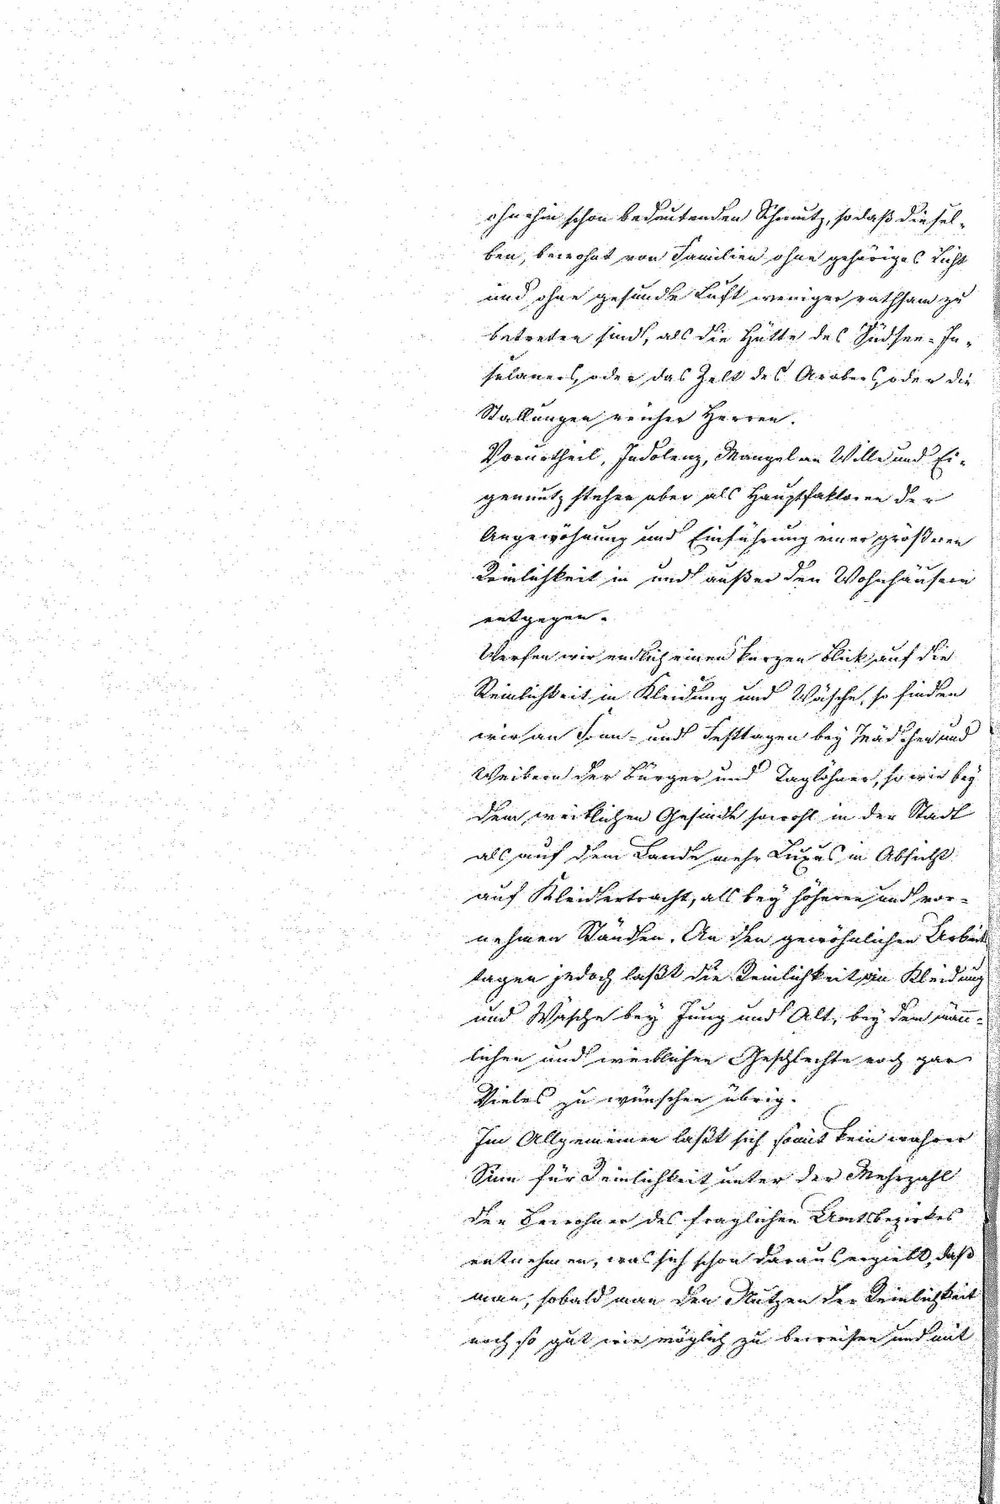 ohnehin schon bedeutenden Schmutz, so daß diesel-
ben, bewohnt von Familien ohne gehöriges Licht
und ohne gesunde Luft weniger rathsam zu
betreten sind, als die Hütte des Südsee-In-
sulaners, oder das Zelt des Arabers, oder die
Stallungen reicher Herren.
Vorurtheil, Indolenz, Mangel an Wille und Ei-
gennutz stehen aber als Hauptfaktoren der
Angewöhnung und Einführung einer größeren
Reinlichkeit in und außer den Wohnhäusern
entgegen.
Werfen wir endlich einen kurzen Blick auf die
Reinlichkeit in Kleidung und Wäsche, so finden
wir an Sonn- und Festtagen bey Mädchen und
Weibern der Bürger und Taglöhner, so wie bey
dem weiblichen Gesinde sowohl in der Stadt
als auf dem Lande mehr Luxus in Absicht
auf Kleidertracht, als bey höheren und vor-
nehmen Ständen. An den gewöhnlichen Arbeits
tagen jedoch laßt die Reinlichkeit in Kleidung
und Wäsche bey Jung und Alt, bey dem män̄-
lichen und weiblichen Geschlechte noch gar
Vieles zu wünschen übrig.
Im Allgemeinen laßt sich somit kein wahrer
Sinn für Reinlichkeit unter der Mehrzahl
der Bewohner des fraglichen Amtsbezirkes
entnehmen, was sich schon daraus ergiebt, daß
man, sobald man den Nutzen der Reinlichkeit
noch so gut wie möglich zu beweisen und mit